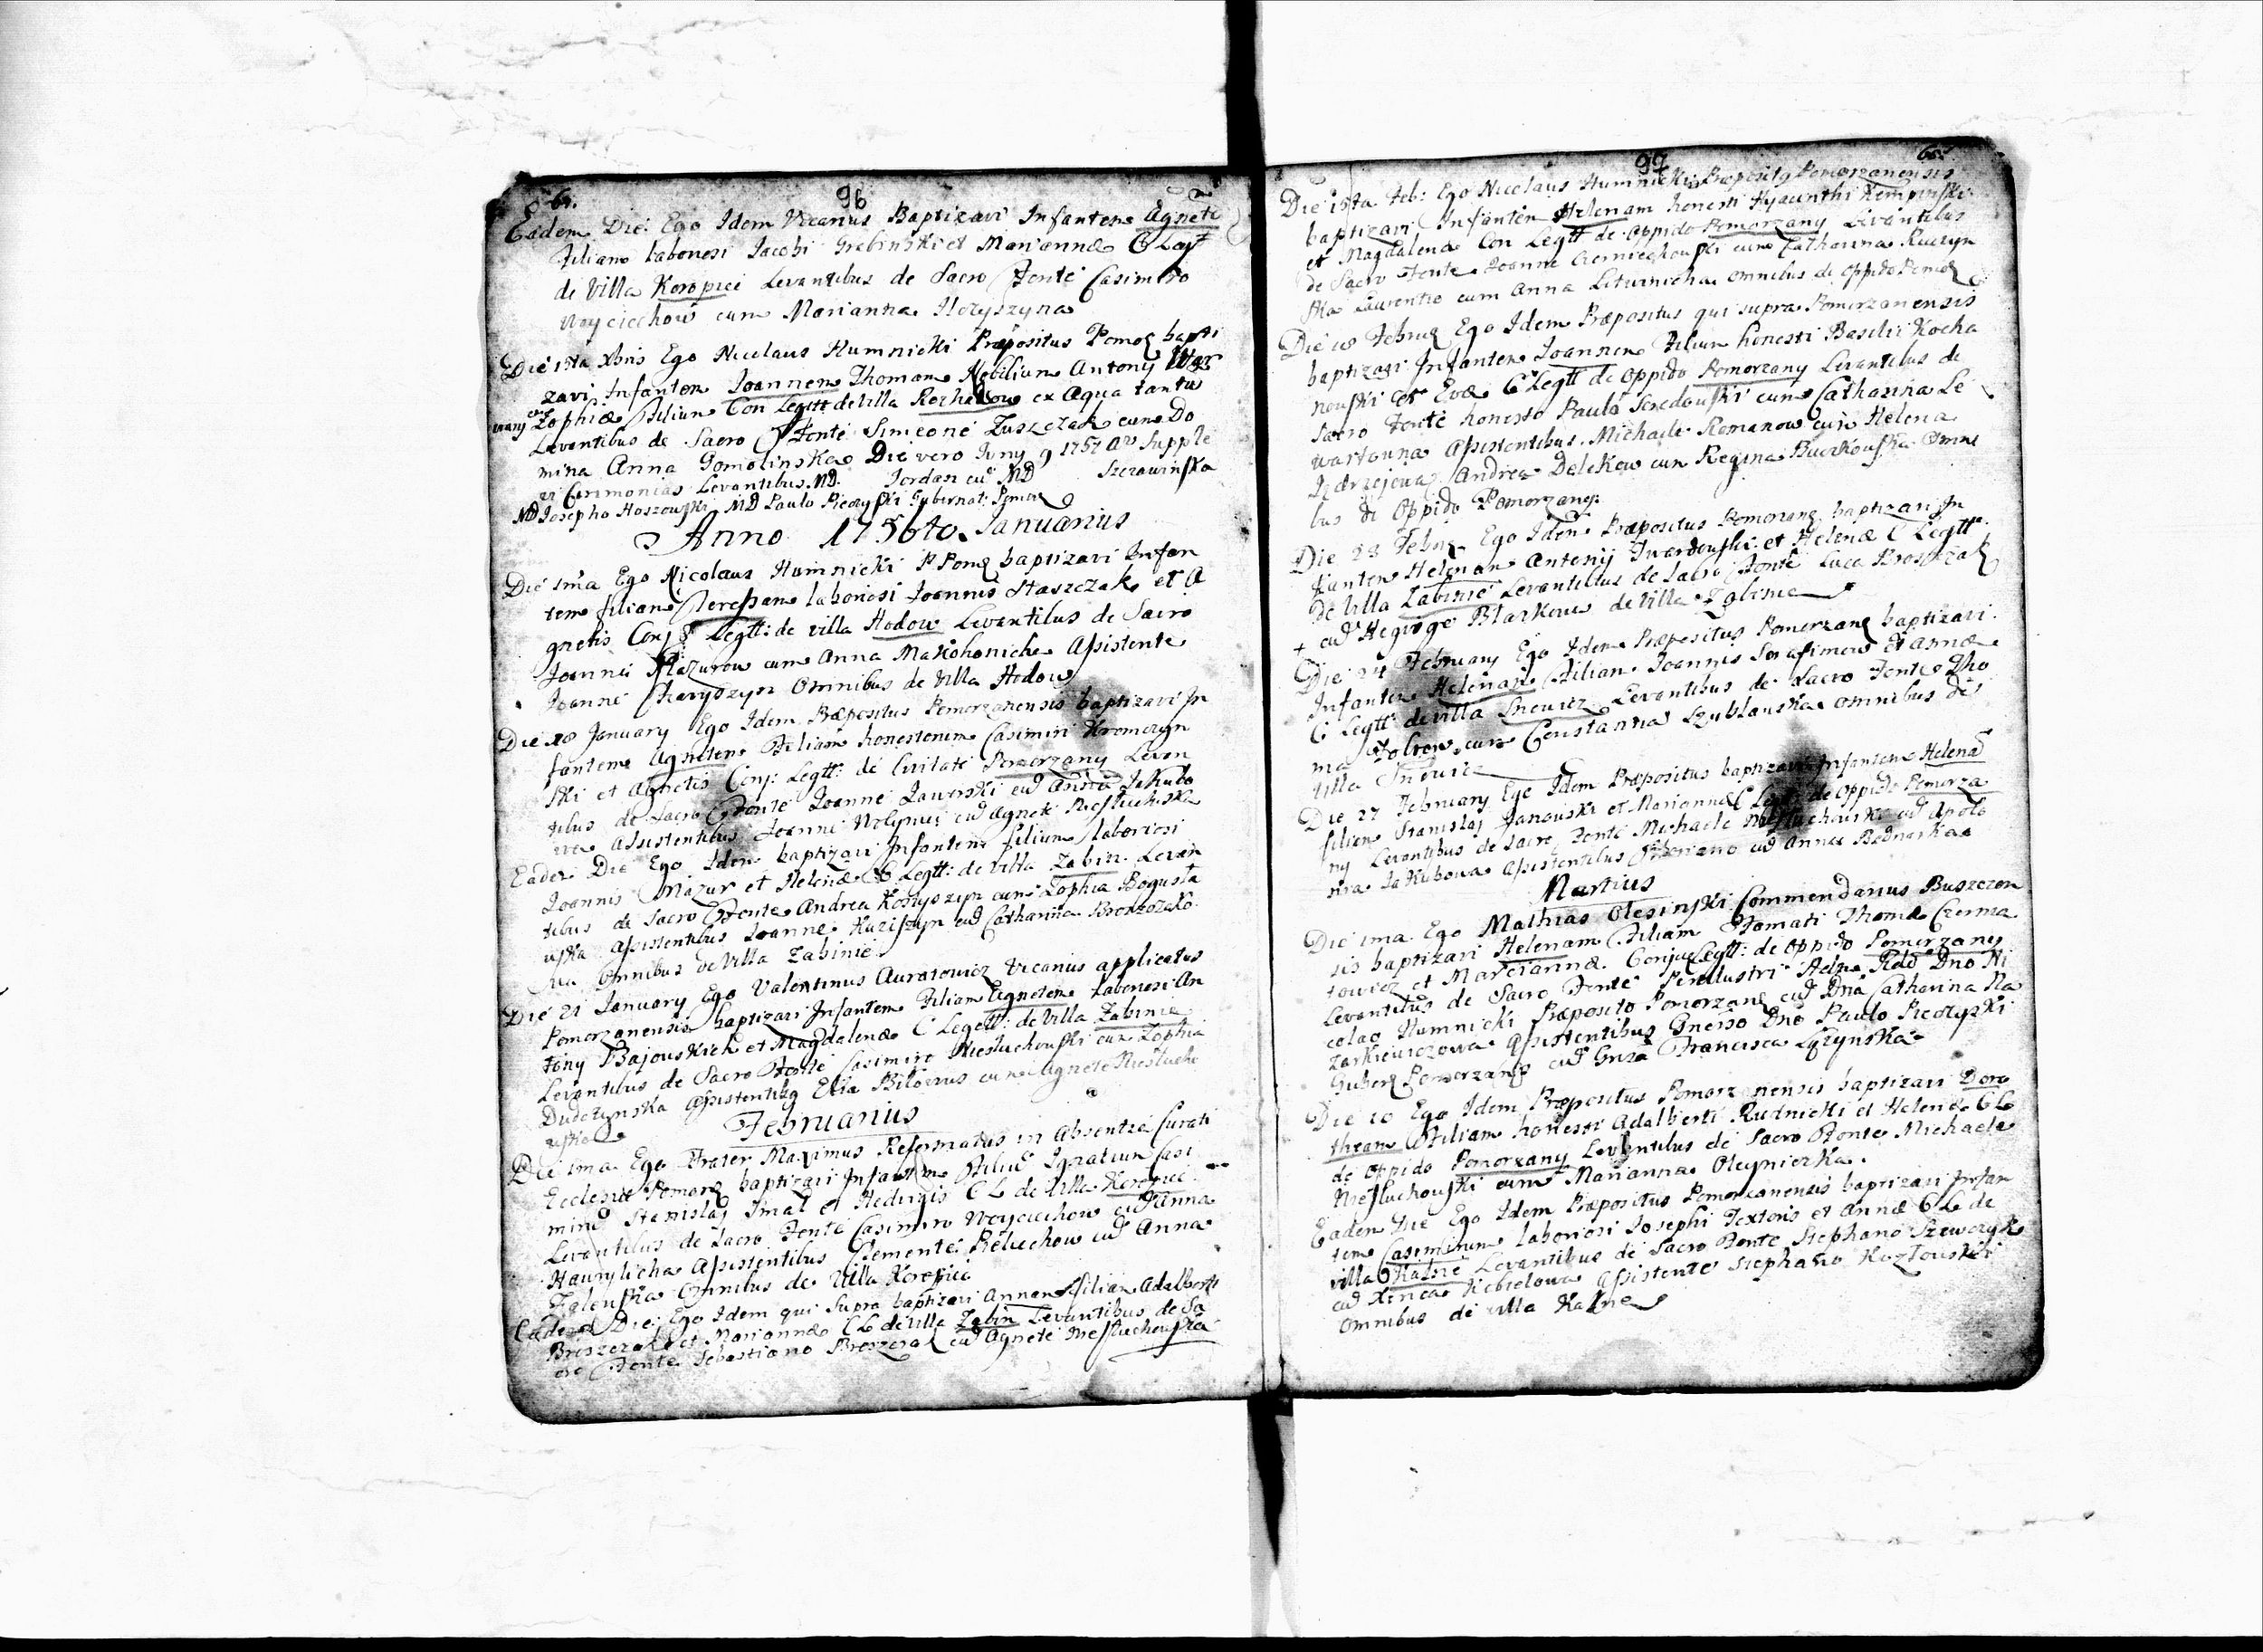 64. 96
Eadem Die: Ego Idem Vicarius Baptizavi Infantem Agnete
Filiam laboriosi Jacobi Grebinski et Mariannæ C Legt
de Villa Koropiei Levantibus de Sacro Fonte Casimiro
Woyciechow cum Marianna Horyszyna
Die 15ta Xbris Ego Nicolaus Humnicki Præpositus Pomoz bapti
zavi Infantem Joannem Thomam Nobilium Antony
Zophiæ Filium Con Legtt de Villa ex Aqua tantu
Levantibus de Sacro Fonte Simeone Luszczak cum Do
mina Anna Gomolinska Die vero Juny 9 1757 An Supple
vi Cerimonias Levantibus MD. Jordan cu MD Szczawinska
MD Josepho Hoszowski MD Paulo Pieczyski Gubernat: Pomorz
Anno 1756to. Januarius
Die 1ma Ego Nicolaus Humnicki P Pomz baptizavi Infan
tem filiam Teressam laboriosi Joannis Staszczak et A
gnetis Conj Legtt: de villa Hodow Levantibus de Sacro
Joanne Mazurow cum Anna Makohonicha Assistente
Joanne Harydzyn Omnibus de Villa Hodow
Die 18 January Ego Idem Præpositus Pomorzanensis baptizavi In
fantem Agnetem Filiam honestorum Casimiri Kromczyn
ski et Agnetis Conj: Legtt: de Civitate Pomorzany Levan
tibus de Sacro Fonte Joanne Zaworski cu Anna Jakubo
wa Assistentibus Joanne Wolynus cu Agnete Niestuchoska
Eadem Die Ego Idem baptizavi Infantem filium laboriosi
Joannis Mazur et Helenæ C Legtt: de Villa Zabin Levan
tibus de Sacro Fonte Andrea Koryszyn cum Zophia Bogusta
wska Assistentibus Joanne Huziszyn cu Catharina Brozozako
wa Omnibus de Villa Zabinie
Die 21 January Ego Valentinus Auratowicz Vicarius applicatus
Pomorzanensis baptizavi Infantem Filiam Agnetem Laboriosi An
tony Bajowskich et Magdalenæ C Legtt: de Villa Zabinie
Levantibus de Sacro Fonte Casimiro Niestuchowski cum Zophia
Dudczynska Assistentibq Elia Bilozrus cum Agnete Niestucho
wska
Februarius
Die 1ma Ego Frater Maximus Reformatus in Absentia Curati
Ecclesiæ Pomorz baptizavi Infantem Filiu Ignatium Casi
miru Stanislaj Smal et Hedvigis C L de Villa Koropiec
Levantibus de Sacro Fonte Casimiro Woyciechow cu Anna
Hawrylicha Assistentibus Clemente Beluchow cu Anna
Zalenska Omnibus de Villa Koropiec
Eadem Die: Ego Idem qui Supra baptizavi Annam filiam Adalberti
Broszczak et Mariannæ C L de Villa Zabin Levantibus de Sa
cro Fonte Sebastiano Broszczak cu Agnete Niestuchowska
97 65.
Die 15ta Feb: Ego Nicolaus Humnicki Præpositq Pomorzanensis
baptizavi Infantem Helenam honesti Hyacinthi Kempinski
et Magdalenæ Con Legtt de Oppido Pomorzany Levantibus
de Sacro Fonte Joanne Czerniechowski cum Catharina Ruczyn
ska Laurentio cum Anna Liturnicha omnibus de Oppido Pomorz
Die 18 Februa Ego Idem Præpositus qui supra Pomorzanensis
baptizavi Infantem Joannem Filium honesti Basilii Kocha
nowski et Evæ C Legtt de Oppido Pomorzany Levantibus de
Sacro Fonte honesto Paulo Seredowski cum Catharina Le
wartowna Assistentibus Michaele Romanow cum Helena
Jędrzejowa Andrea Delekow cum Regina Buczkowska Omni
bus de Oppido Pomorzany.
Die 23 Febru Ego Idem Præpositus Pomorzanz baptizavi In
fantem Helenam Antonij Twardowski et Helenæ C Legtt
de Villa Zabinie Levantibus de Sacro Fonte Luca Broszczak
+ cu Hegvige Blazkowa de Villa Zabinie
Die 24 February Ego Idem Præpositus Pomorzanz baptizavi
Infantem Helenam Filiam Joannis Serafimow et Annæ
C Legtt de villa Snowicz Levantibus de Sacro Fonte Tho
ma Zobrow cum Constantia Szublanska omnibus de
Villa Snowicz
Die 27 February Ego Idem Præpositus baptizavi Infantem Helena
filiam Stanislaj Janowski et Mariannæ C Legtt de Oppido Pomorza
ny Levantibus de Sacro Fonte Michaele Niestuchowski cu Apolo
nia Jakubowa Assistentibus cu Anna Bednarska
Martius
Die 1ma Ego Mathias Olesinski Commendarius Buszczen
sis baptizavi Helenam Filiam Famati Thomæ Czerma
towicz et Mariannæ Conju Legtt: de Oppido Pomorzany
Levantibus de Sacro Fonte Perillustri Adm Rdo Dno Ni
colao Humnicki Præposito Pomorzanz cu Dna Catharina Na
zarkiewiczowa Assistentibus Gneroso Dno Paulo Pieczyski
Guberz Pomorzanis cu Gnza Francisca Lozynska
Die 10 Ego Idem Præpositus Pomorzanensis baptizavi Doro
theam Filiam honesti Adalberti Rudnicki et Helenæ C L
de Oppido Pomorzany Levantibus de Sacro Fonte Michaele
Niestuchowski cum Marianna Oleyniczka.
Eadem Die Ego Idem Præpositus Pomorzanensis baptizavi Infan
tem Casimirum laboriosi Josephi Textoris et Annæ C L de
villa Kalne Levantibus de Sacro Fonte Stephano Szewczyk
cu Xenia Kobielowa Assistente Stephano Kozlowski
Omnibus de villa Kalne